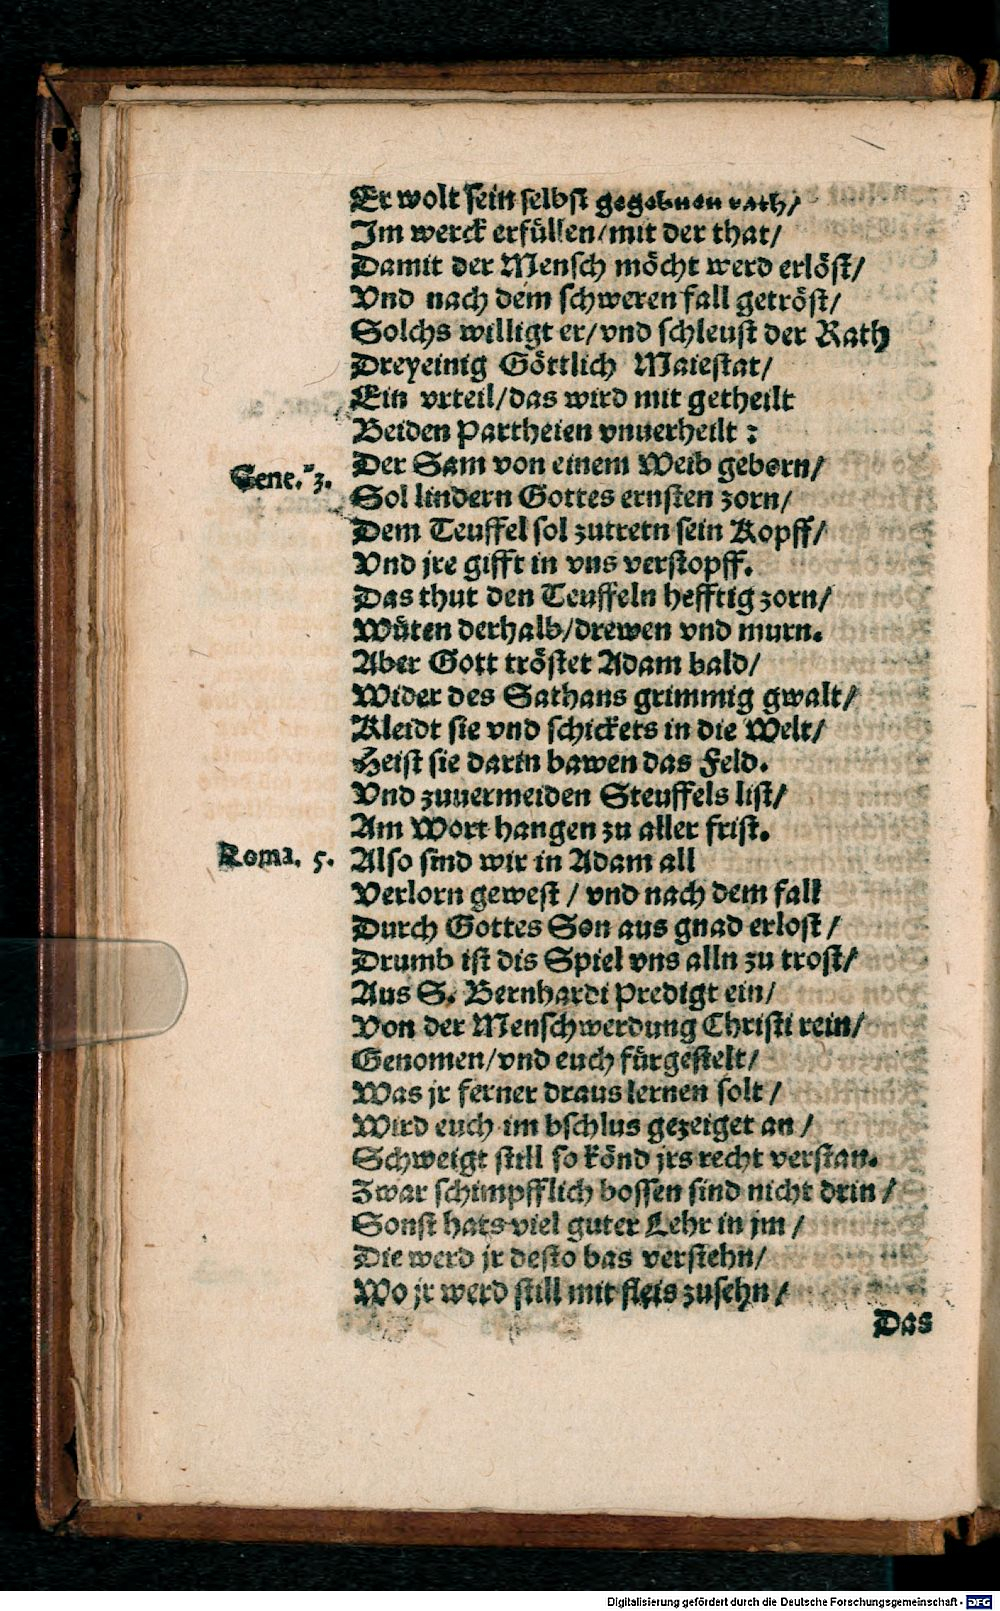 Er wolt sein selbst gegebnen rath/
Im werck erfüllen/mit der that/
Damit der Mensch möcht werd erlöst/
Vnd nach dem schweren fall getröst/
Solchs willigt er/vnd schleust der Rath
Dreyeinig Göttlich Maiestat/
Ein vrteil/das wird mit getheilt
Beiden Partheien vnuerheilt :
Gene. 3.
Der Sam von einem Weib geborn/
Sol lindern Gottes ernsten zorn/
Dem Teuffel sol zutretn sein Kopff/
Vnd jre gifft in vns verstopff.
Das thut den Teuffeln hefftig zorn/
Wüten derhalb/drewen vnd murn.
Aber Gott tröstet Adam bald/
Wider des Sathans grimmig gwalt/
Kleidt sie vnd schickets in die Welt/
Heist sie darin bawen das Feld.
Vnd zuuermeiden Steuffels list/
Am Wort hangen zu aller frist.
Roma. 5.
Also sind wir in Adam all
Verlorn gewest / vnd nach dem fall
Durch Gottes Son aus gnad erlost /
Drumb ist dis Spiel vns alln zu trost/
Aus S. Bernhardi Predigt ein/
Von der Menschwerdung Christi rein/
Genomen/vnd euch fürgestelt/
Was jr ferner draus lernen solt /
Wird euch im bschlus gezeiget an /
Schweigt still so könd jrs recht verstan.
Zwar schimpfflich bossen sind nicht drin /
Sonst hats viel guter Lehr in jm /
Die werd jr desto bas verstehn/
Wo jr werd still mit fleis zusehn /
Das
Digitalisierung gefördert durch die Deutsche Forschungsgemeinschaft - DFG